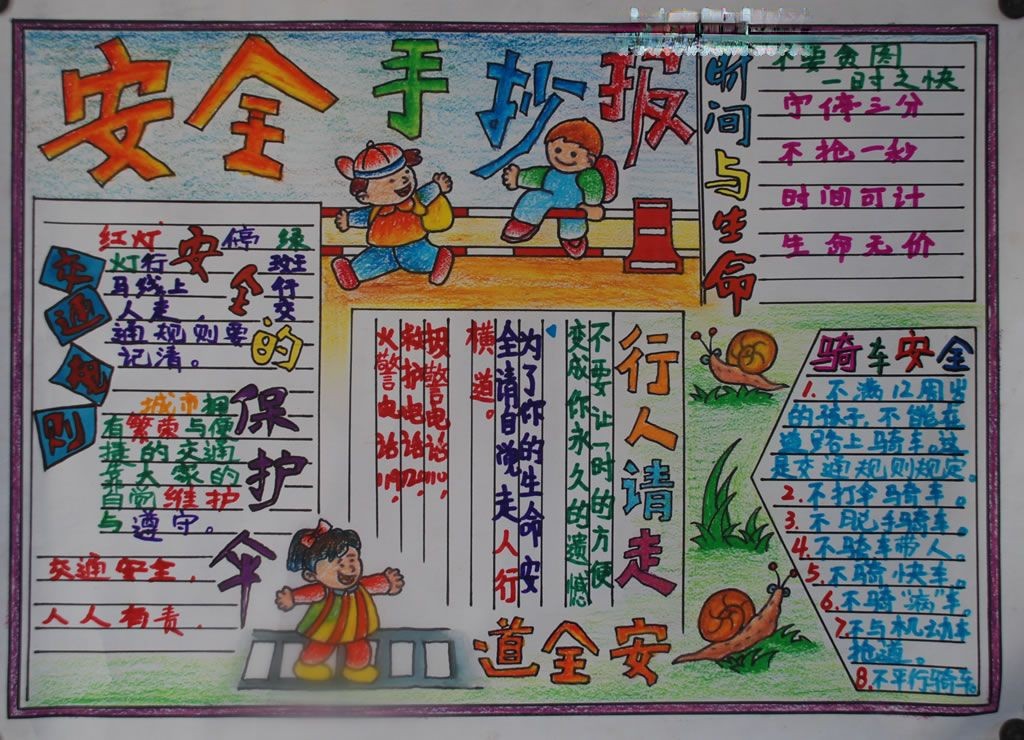 安全手抄报
瞬间与生命
不要贪图
一时之快
宁停三分
不抢一秒
时间可计
生命无价
交通规则
安全的保护伞
红灯停绿
灯行班
马线上行
人走交
通规则要
记清。
城市拥
有繁荣与便
捷的交通
靠大家的
自觉维护
与遵守。
交通安全,
人人有责.
行人请走安全道
不要让一时的方便
变成你永久的遗憾
为了你的生命安
全请自觉走人行
横道。
报警电话110,
救护电话120,
火警电话119,
骑车安全
1.不满12周岁
的孩子,不能在
道路上骑车。这
是交通规则规定。
2.不打伞骑车。
3.不脱手骑车。
4.不骑车带人。
5.不骑快车。
6.不骑“病”车。
7.不与机动车
抢道。
8.不平行骑车。